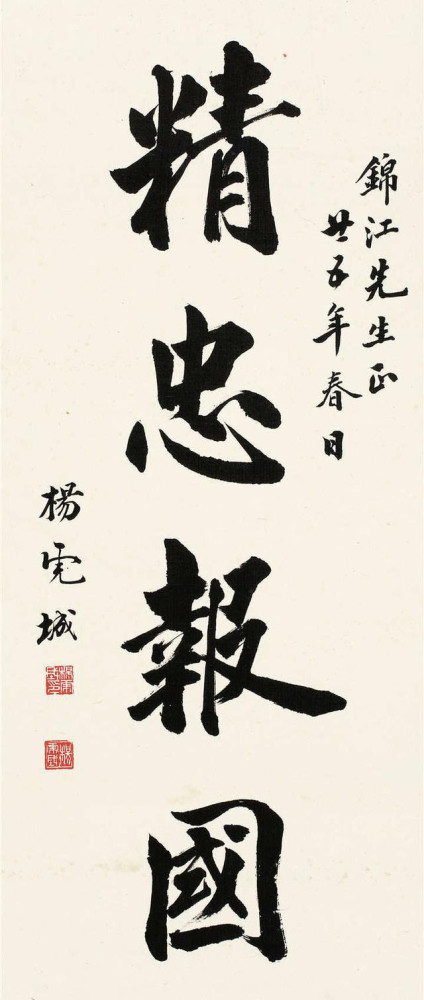 錦江先生正
廿五年春日
精忠報國
楊虎城